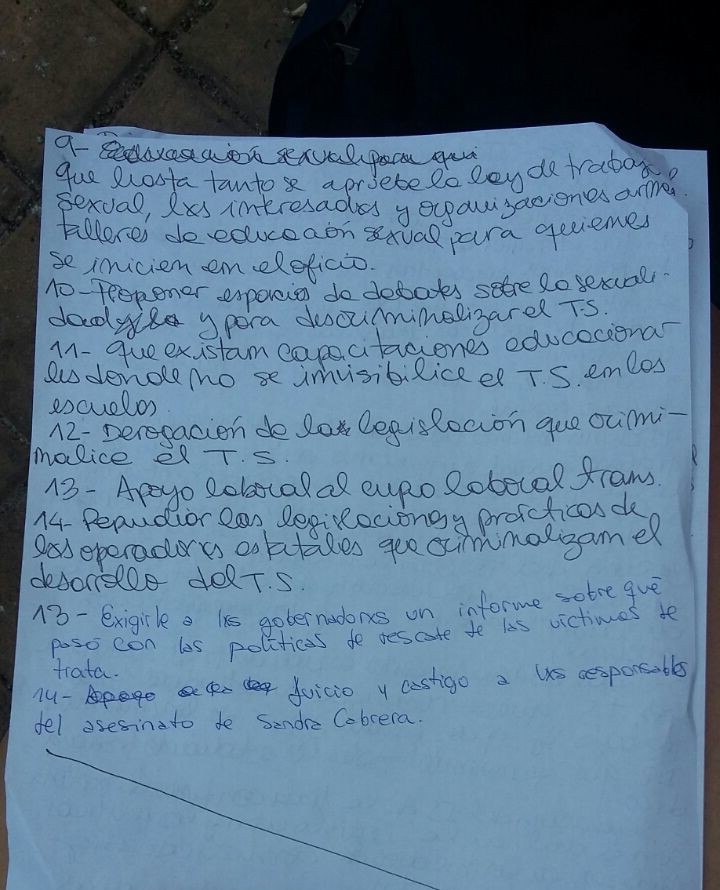 9- Educación sexual para qui
que hasta tanto se apruebe la ley de trabajo
sexual, lxs interesadxs y organizaciones armen
talleres de educación sexual para quienes
se inicien en el oficio.
10- Proponer espacios de debates sobre la sexuali-
dad y para descriminalizar el T.S.
11- que existan capacitaciones educaciona-
les donde no se invisibilice el T.S. en las
escuelas.
12- Derogación de la legislación que crimi-
nalice el T.S.
13- Apoyo laboral al cupo laboral trans.
14- Repudiar las legislaciones y prácticas de
lxs operadorxs estatales que criminalizan el
desarrollo del T.S.
13- Exigirle a lxs gobernadorxs un informe sobre qué
pasó con las políticas de rescate de las víctimas de
trata.
14- Juicio y castigo a lxs responsables
del asesinato de Sandra Cabrera.